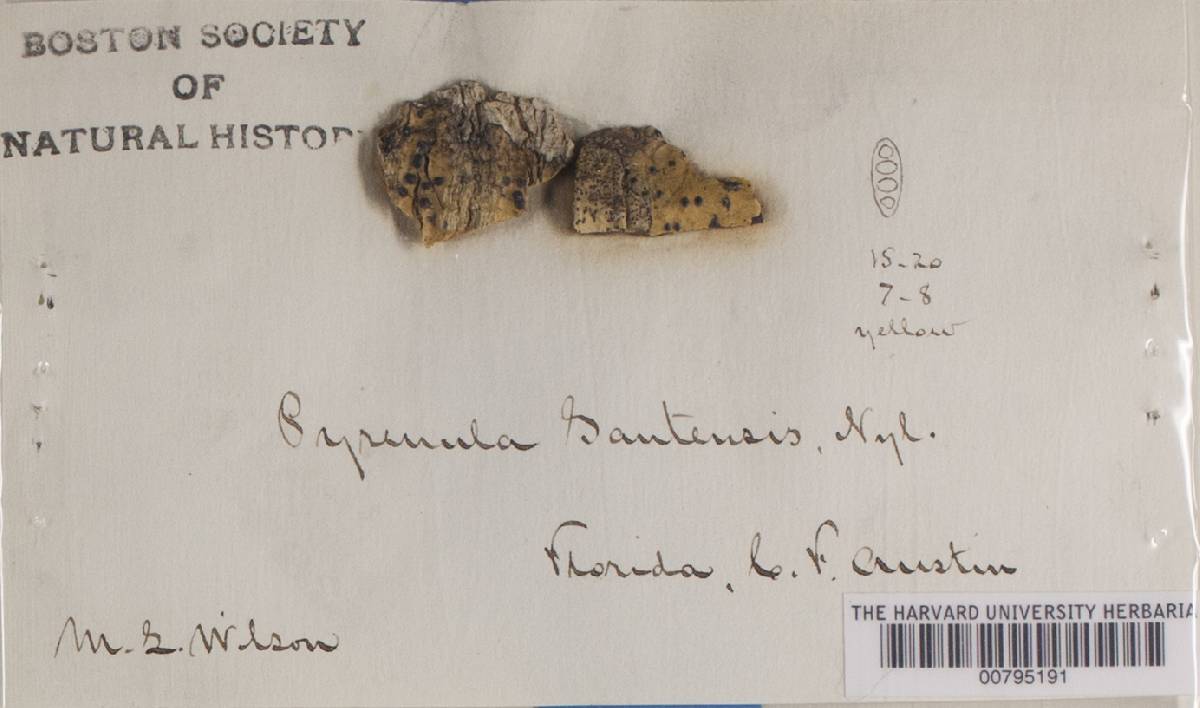 BOSTON SOCIETY
OF
NATURAL HISTOR
15-20
7-8
yellow
Pyrenula Santensis, Nyl.
Florida, C. F. Austin
M. L. Wilson
THE HARVARD UNIVERSITY HERBARIA
00795191